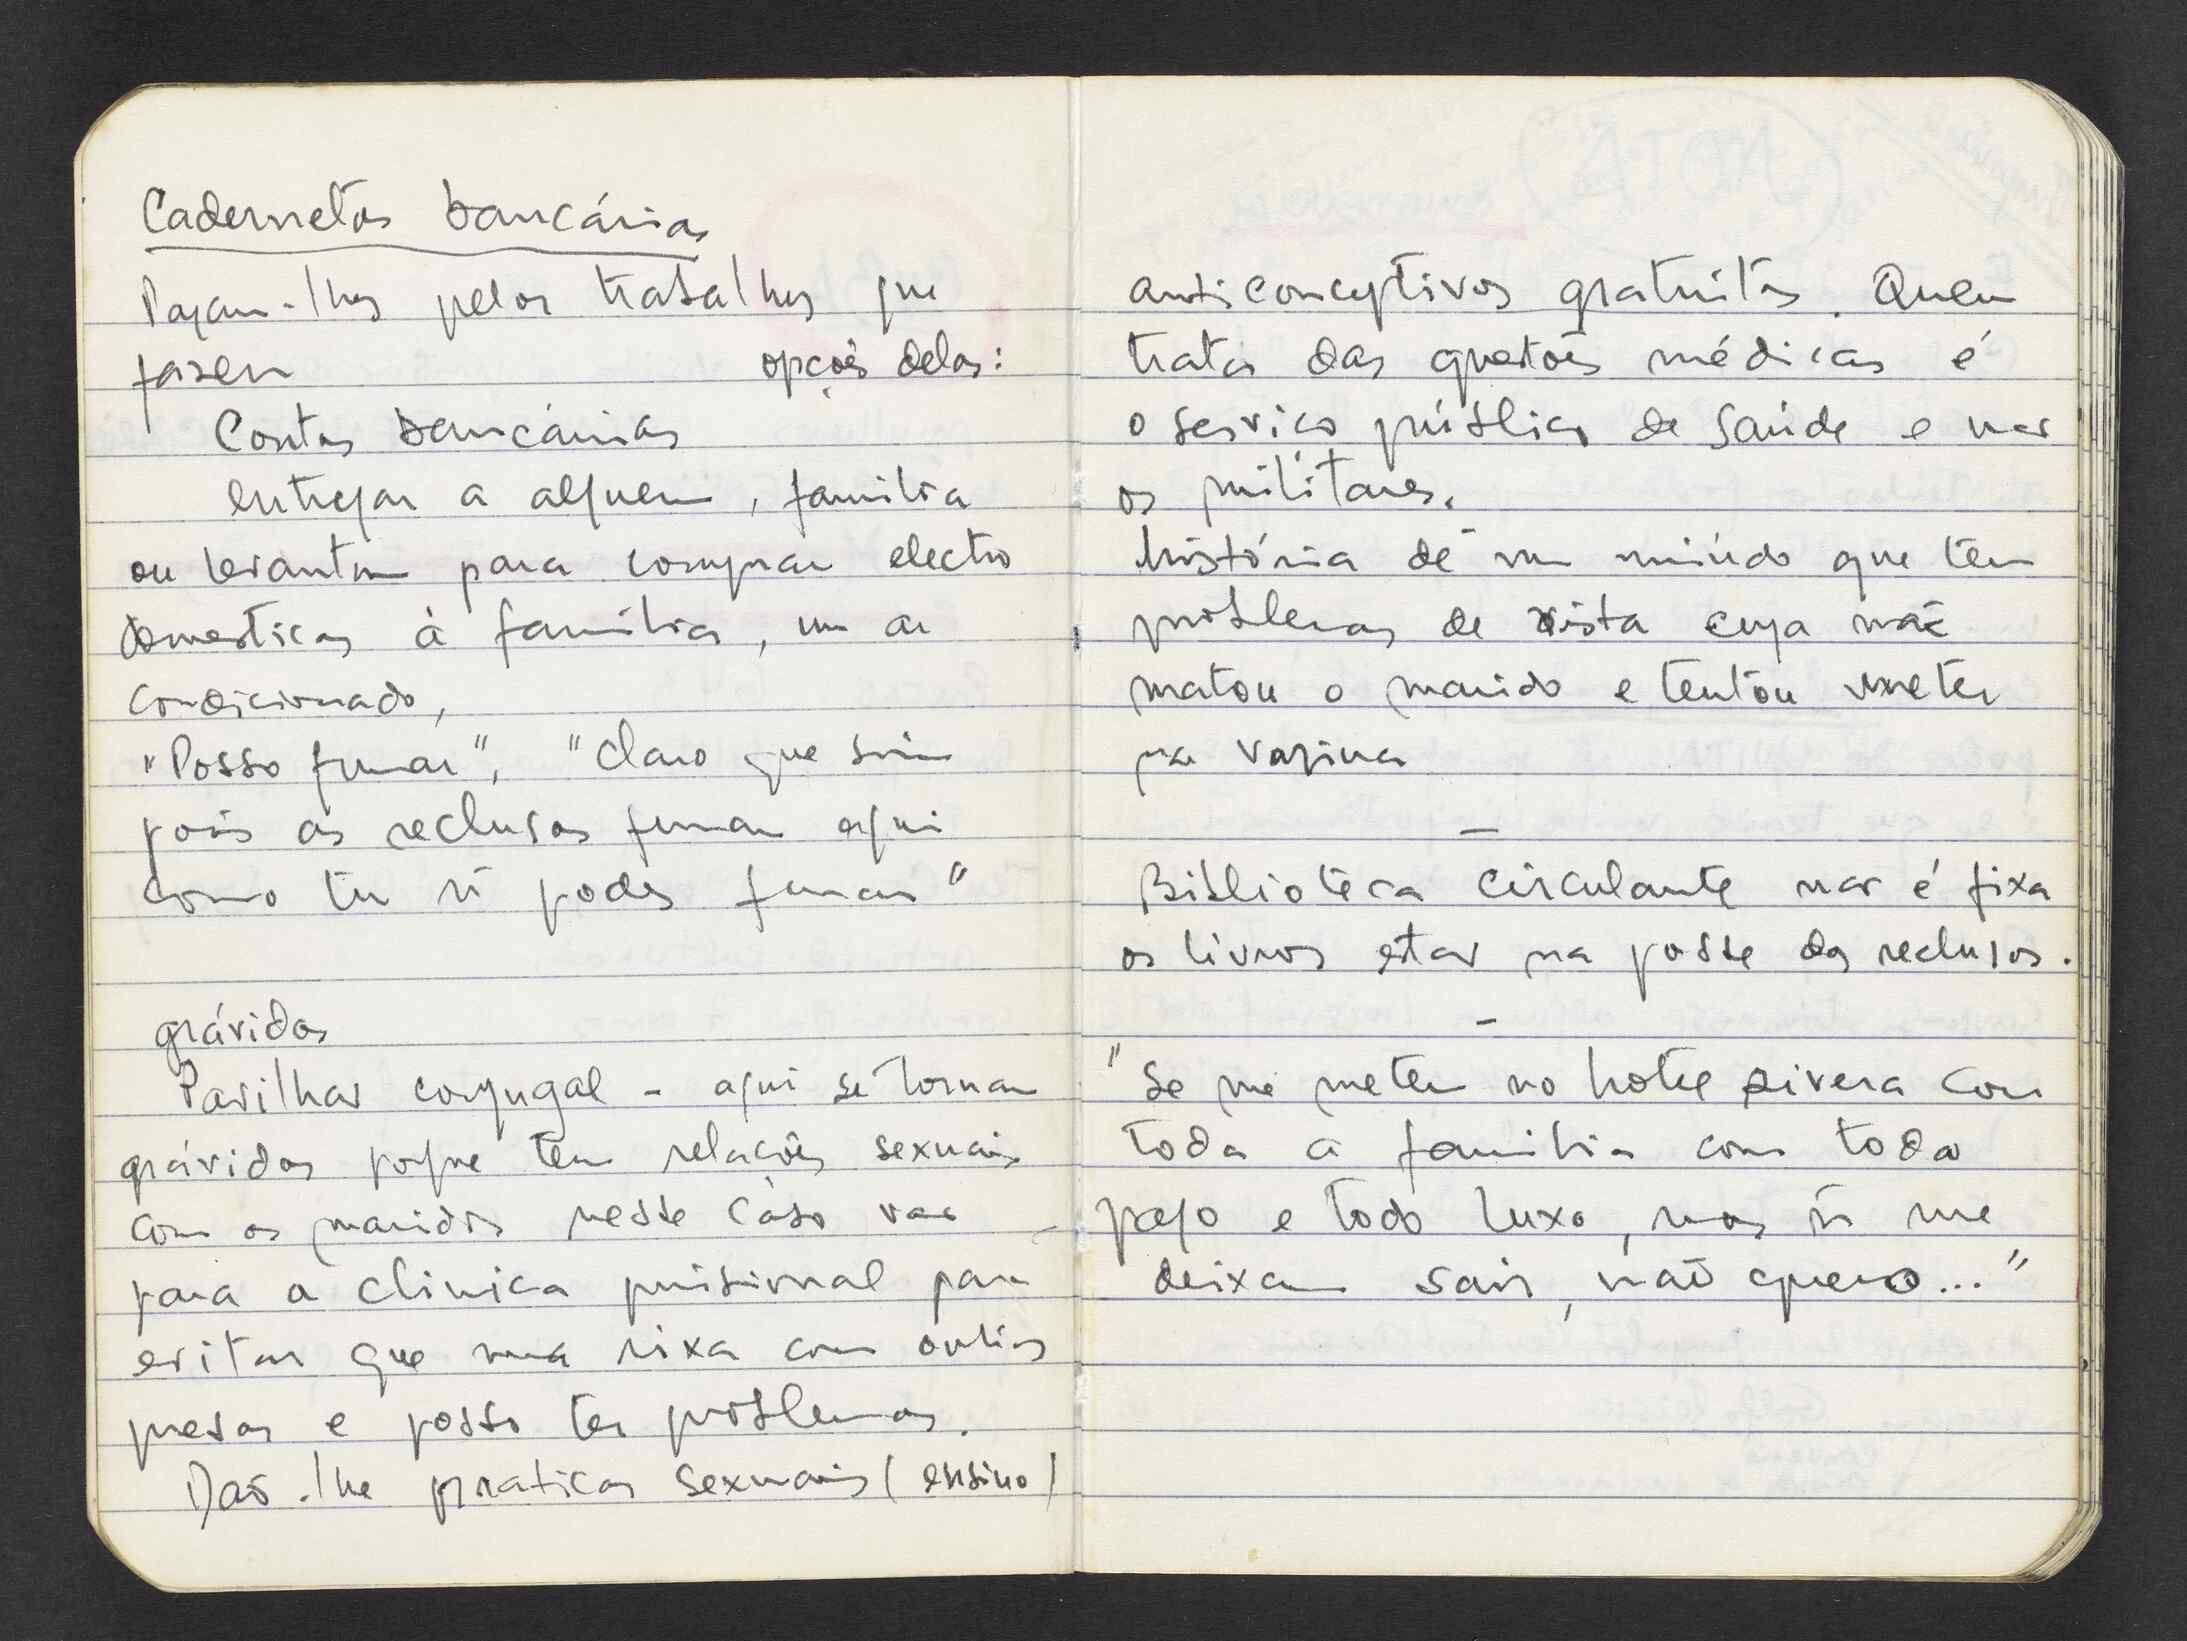 Cadernetas bancárias
Pagam-lhes pelos trabalhos que
fazem opções delas:
Contas bancárias
entregar a alguem, familia
ou levantam para comprar electro
domesticos à família, um ar
condicionado,
"Posso fumar", "Claro que sim
pois as reclusas fumam aqui
como tu ñ podes fumar"
grávidas
Pavilhão conjugal - aqui se tornam
grávidas porque tem relações sexuais
com os maridos nesse caso vão
para a clinica prisional para
evitar que numa rixa com outras
presas e possa ter problemas.
Dão-lhe praticas sexuais (ensino)
anticonceptivos gratuitos. Quem
trata das questões médicas é
o serviço público de saúde e não
os militares.
história de um miúdo que tem
problemas de vista cuja mãe
matou o marido e tentou meter
na vagina
—
Biblioteca circulante não é fixa
os livros estão na posse dos reclusos.
—
"Se me metem no hotel rivera com
toda a familia com todo
pago e todo luxo, mas ñ me
deixam sair, não quero..."